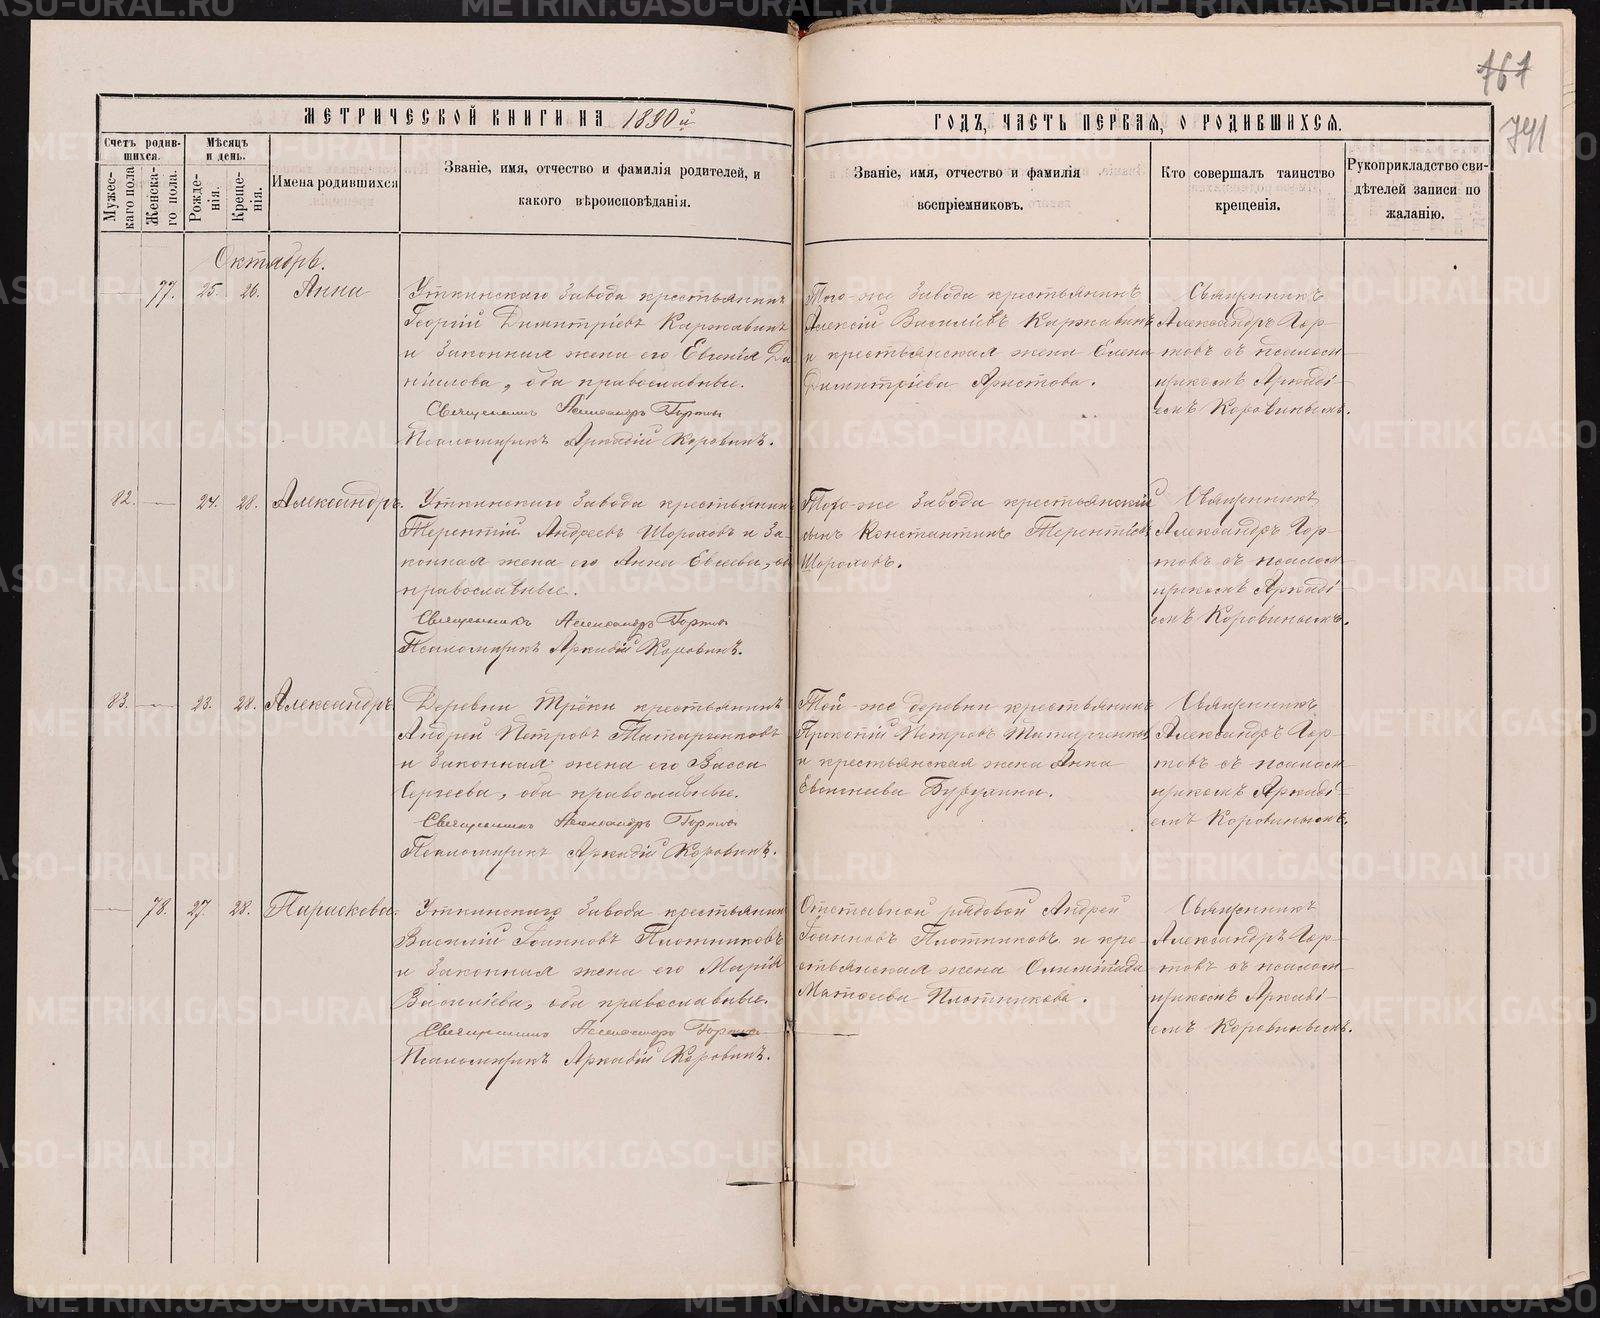 761
741
МЕТРИЧЕСКОЙ КНИГИ НА 1890й
ГОДЪ, ЧАСТЬ ПЕРВАЯ, О РОДИВШИХСЯ.
Счетъ родив-
шихся.
Мужес-
каго пола
Женска-
го пола.
Мѣсяцъ
и день.
Рожде-
нія.
Креще-
нія.
Имена родившихся
Званіе, имя, отчество и фамилія родителей, и
какого вѣроисповѣданія.
Званіе, имя, отчество и фамилія
воспріемниковъ.
Кто совершалъ таинство
крещенія.
Рукоприкладство сви-
дѣтелей записи по
жаланію.
Октябрь.
77. 25. 26. Анна
Уткинскаго завода крестьянинъ
Георгій Димитріевъ Каржавинъ
и законная жена его Евгенія Да
ніилова, оба православные.
Священникъ Александръ Гортовъ
Псаломщикъ Аркадій Коровинъ.
Того-же завода крестьянинъ
Алексій Василіевъ Каржавинъ
и крестьянская жена Елена
Димитріева Аристова.
Священникъ
Александръ Гор-
товъ съ псалом-
щикомъ Аркаді-
емъ Коровинымъ.
82. 24. 28. Александръ.
Уткинскаго завода крестьянинъ
Терентій Андреевъ Шороховъ и за-
конная жена его Анна Евсеева, оба
православные.
Священникъ Александръ Гортовъ
Псаломщикъ Аркадій Коровинъ.
Того-же завода крестьянскій
сынъ Константинъ Терентіевъ
Шороховъ.
Священникъ
Александръ Гор-
товъ съ псалом-
щикомъ Аркаді-
емъ Коровинымъ.
83. 23. 28. Александръ
Деревни Трёки крестьянинъ
Андрей Петровъ Татарченковъ
и законная жена его Васса
Сергеева, оба православные.
Священникъ Александръ Гортовъ
Псаломщикъ Аркадій Коровинъ.
Той-же деревни крестьянинъ
Прокопій Петровъ Татарченковъ
и крестьянская жена Анна
Евгениева
Священникъ
Александръ Гор-
товъ съ псалом-
щикомъ Аркаді-
емъ Коровинымъ.
78. 27. 28. Параскева.
Уткинскаго завода крестьянинъ
Василій Іоанновъ Плотниковъ
и законная жена его Марія
Василіева, оба православные.
Священникъ Александръ Гортовъ
Псаломщикъ Аркадій Коровинъ.
Отставной рядовой Андрей
Іоанновъ Плотниковъ и кре-
стьянская жена Олимпіада
Матѳеева Плотникова.
Священникъ
Александръ Гор-
товъ съ псалом-
щикомъ Аркаді-
емъ Коровинымъ.
METRIKI.GASO-URAL.RU